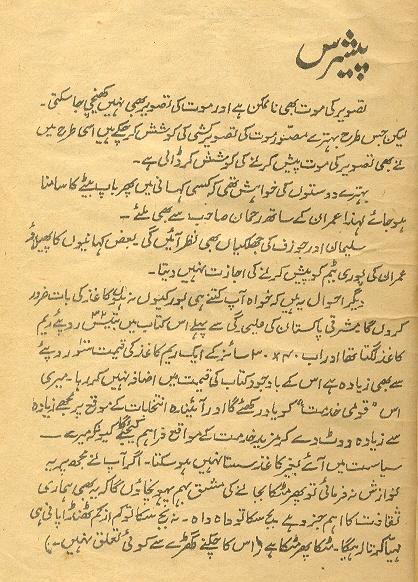 پیشرس
تصویر کی موت بھی ناممکن ہے اور موت کی تصویر بھی نہیں کھینچی جا سکتی۔
لیکن جس طرح بہتیرے مصور موت کی تصویر کشی کی کوشش کر چکے ہیں اسی طرح میں
نے بھی تصویر کی موت پیش کرنے کی کوشش کر ڈالی ہے۔
بہتیرے دوستوں کی خواہش تھی کہ کسی کہانی میں پھر باپ بیٹے کا سامنا
ہو جائے لہٰذا عمران کے ساتھ رحمان صاحب سے بھی ملئے۔
سلیمان اور جوزف کی جھلکیاں بھی نظر آئیں گی۔ بعض کہانیوں کا پھیلاؤ
عمران کی پوری ٹیم کو پیش کرنے کی اجازت نہیں دیتا۔
دیگر احوال یہ ہیں کہ خواہ آپ کتنے ہی بور کیوں نہ ہوں کاغذ کی بات ضرور
کروں گا مشرقی پاکستان کی علیحدگی سے پہلے اس کتاب میں بتیس روپئے ریم
کاغذ لگتا تھا اور اب ۲۰×۳۰ سائز کے ایک ریم کاغذ کی قیمت ستر روپئے
سے بھی زیادہ ہے اس کے باوجود کتاب کی قیمت میں اضافہ نہیں کر رہا۔ میری
اس "قومی خدمت" کو یاد رکھئے گا اور آئیندہ انتخابات کے موقع پر مجھے زیادہ
سے زیادہ ووٹ دے کر مزید خدمت کے مواقع فراہم کیجئے گا کیونکہ میرے
سیاست میں آئے بغیر کاغذ سستا نہیں ہو سکتا۔ اگر آپ نے مجھ پر یہ
نوازش نہ فرمائی تو پھر مٹکا بجانے کی مشق بہم پہونچاؤں گا کہ یہ بھی ہماری
ثقافت کا اہم جزو ہے بج سکا تو واہ واہ۔ نہ بج سکا تو کم از کم ٹھنڈا پانی ہی
مہیا کرتا رہے گا۔ مٹکا پھر مٹکا ہے (اس کا چکنے گھڑے سے کوئی تعلق نہیں۔)